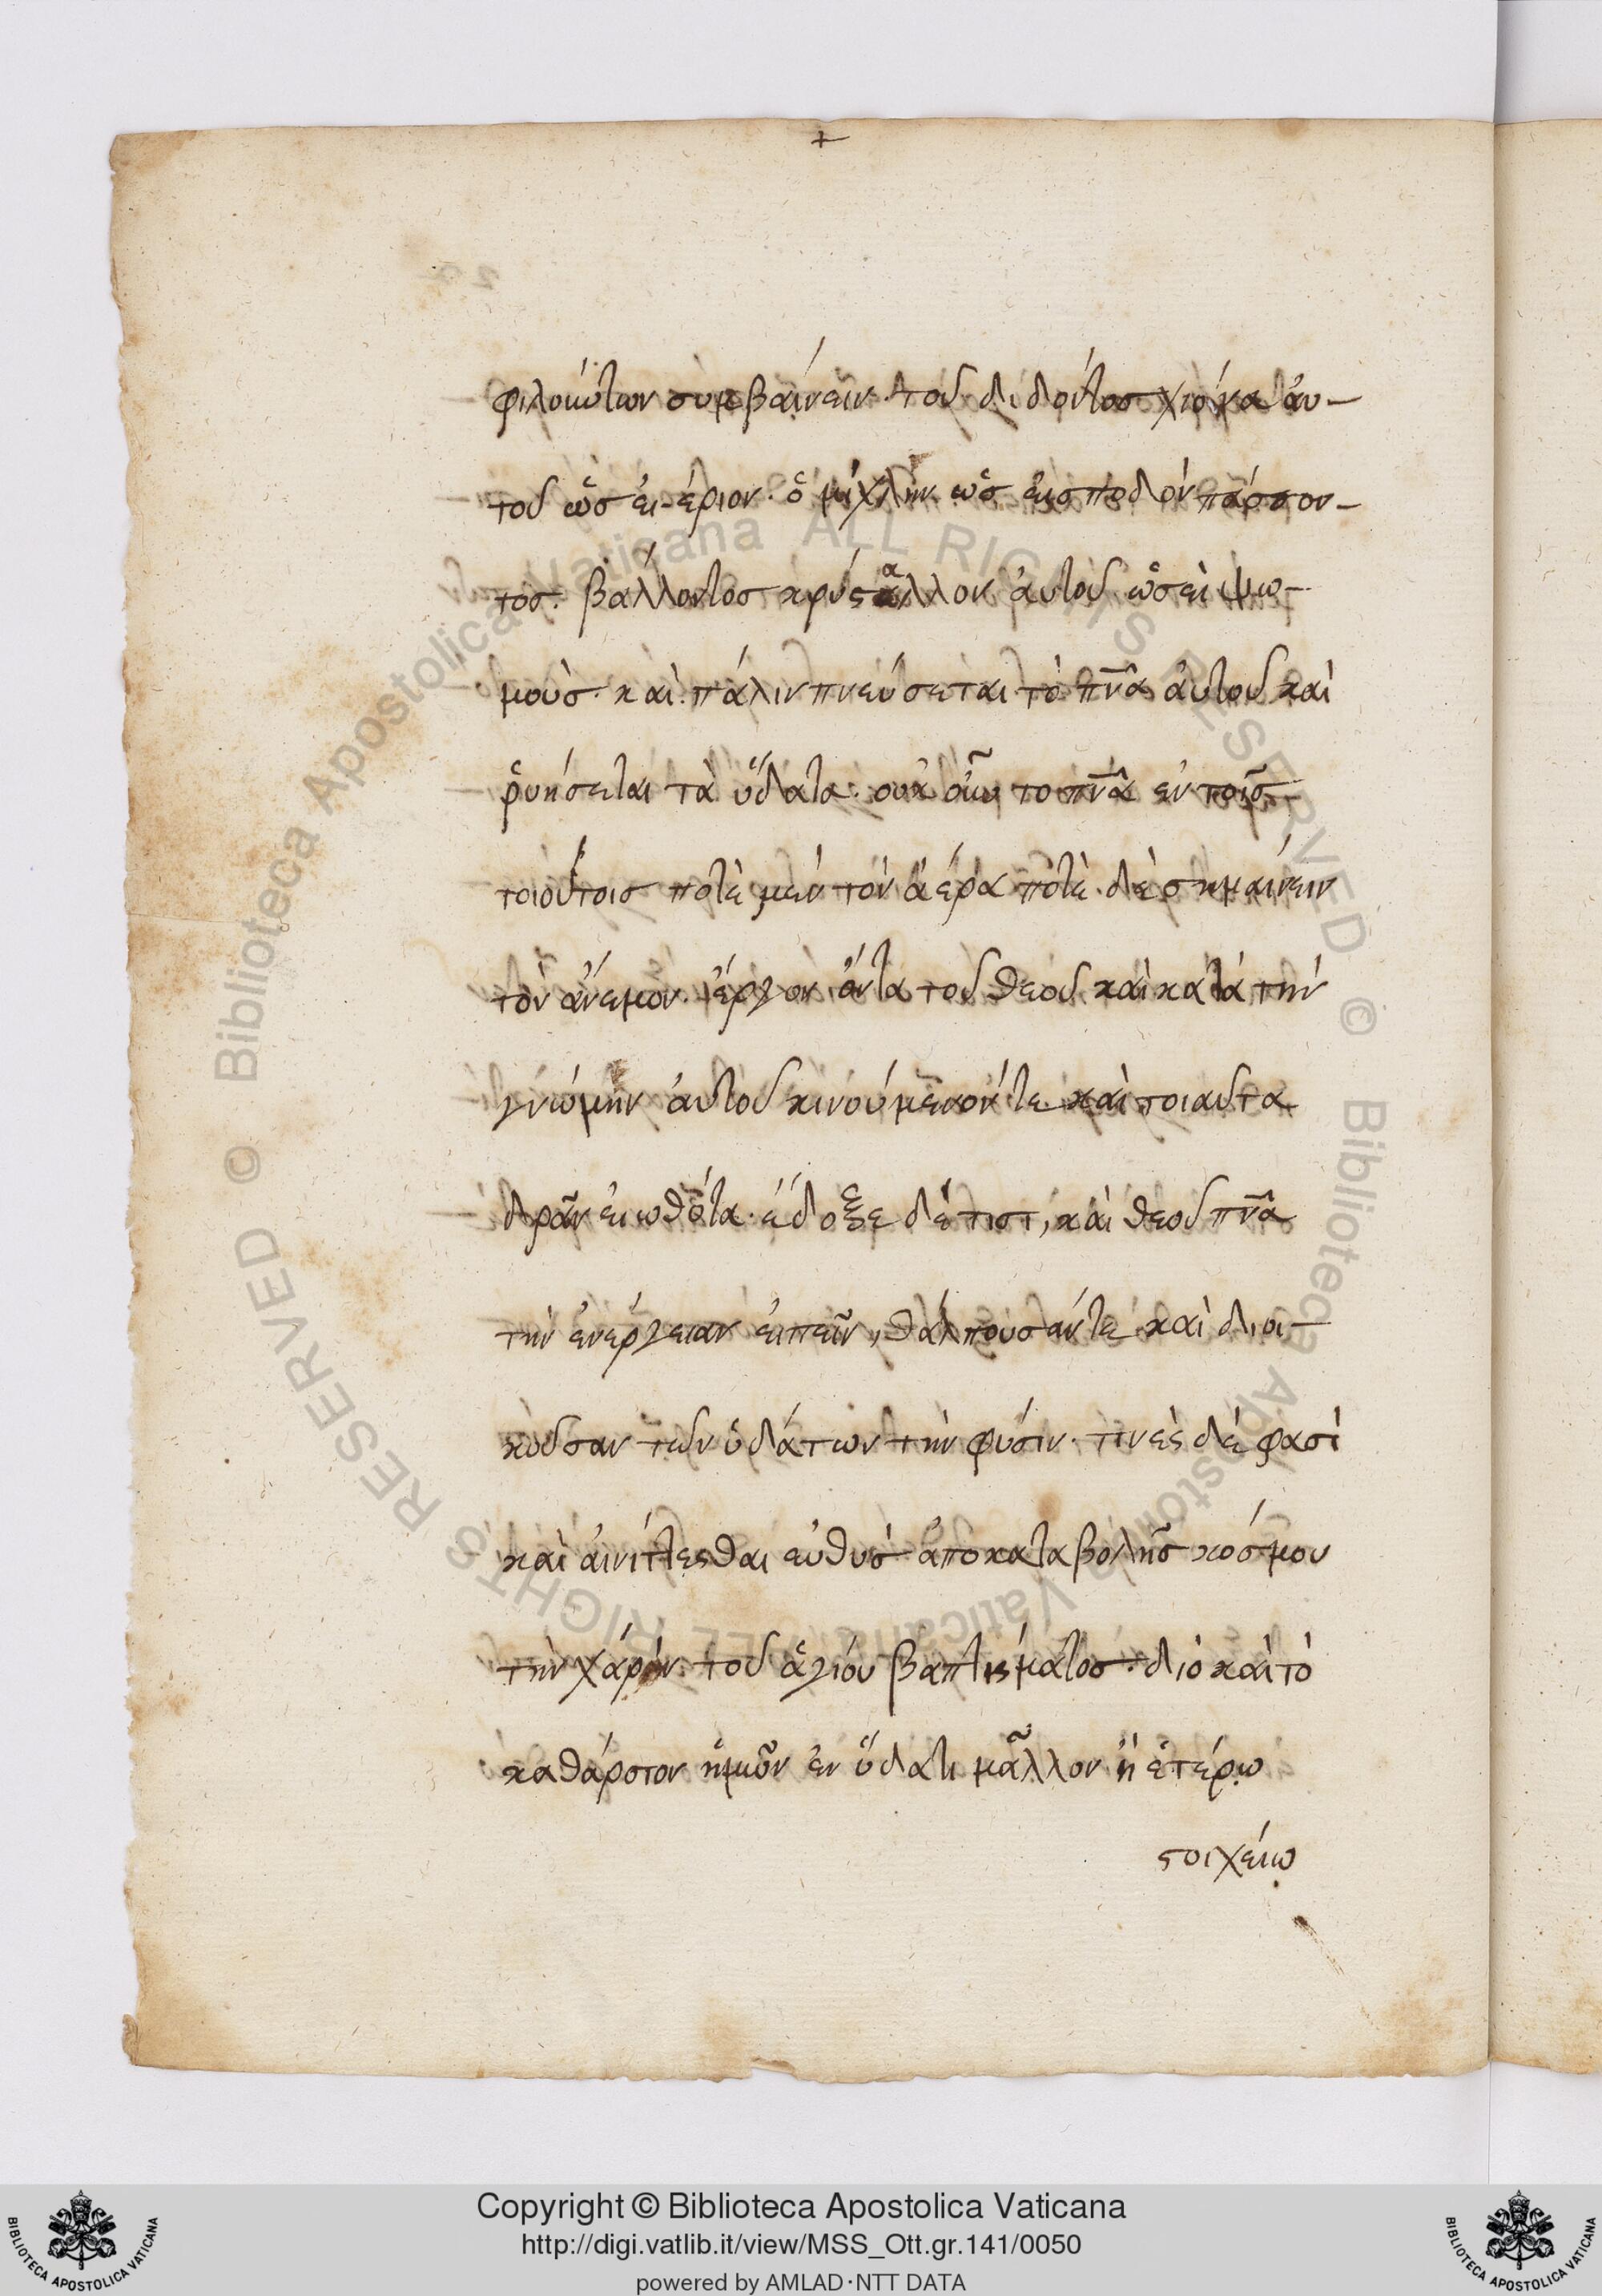 +
φιλοιώτων συμβαίνειν· τοῦ διδόντος χιόνα αὐ-
τοῦ ὡς εἰ ἔριον· ὁμίχλην ὡς εἰ σποδὸν πάσσον-
τος· βάλλοντος κρύσταλλον αὐτοῦ ὡσεὶ ψω-
μούς· καὶ πάλιν πνεύσεται τὸ πν̅α αὐτοῦ καὶ
ῥυήσεται τὰ ὕδατα· οὐκοῦν το πν̅α ἐν τοῖς
τοιούτοις ποτὲ μὲν τὸν ἀέρα ποτὲ δὲ σημαίνειν
τὸν ἄνεμον· ἔργον ὄντα τοῦ θεοῦ καὶ κατὰ τὴν
γνώμην αὐτοῦ κινούμενόν τε καὶ τοιαῦτα
δρᾶν εἰωθότα· ἔδοξε δέ τισι, καὶ θεοῦ πν̅α
τὴν ἐνέργειαν εἰπεῖν, θάλπουσάν τε καὶ διοι-
κοῦσαν τῶν ὑδάτων τὴν φύσιν· τινὲς δέ φασὶ
καὶ αἰνίττεσθαι εὐθυς ἀπο καταβολῆς κόσμου
τὴν χάριν τοῦ ἁγίου βαπτίσματος· διὸ καὶ τὸ
καθάρσιον ἡμῶν ἐν ὕδατι μᾶλλον ἢ ἑτέρῳ
στοιχείῳ
Copyright © Biblioteca Apostolica Vaticana
http://digi.vatlib.it/view/MSS_Ott.gr.141/0050
powered by AMLAD·NTT DATA
BIBLIOTECA APOSTOLICA VATICANA
BIBLIOTECA APOSTOLICA VATICANA
© Biblioteca Apostolica Vaticana ALL RIGHTS RESERVED © Biblioteca Apostolica Vaticana ALL RIGHTS RESERVED